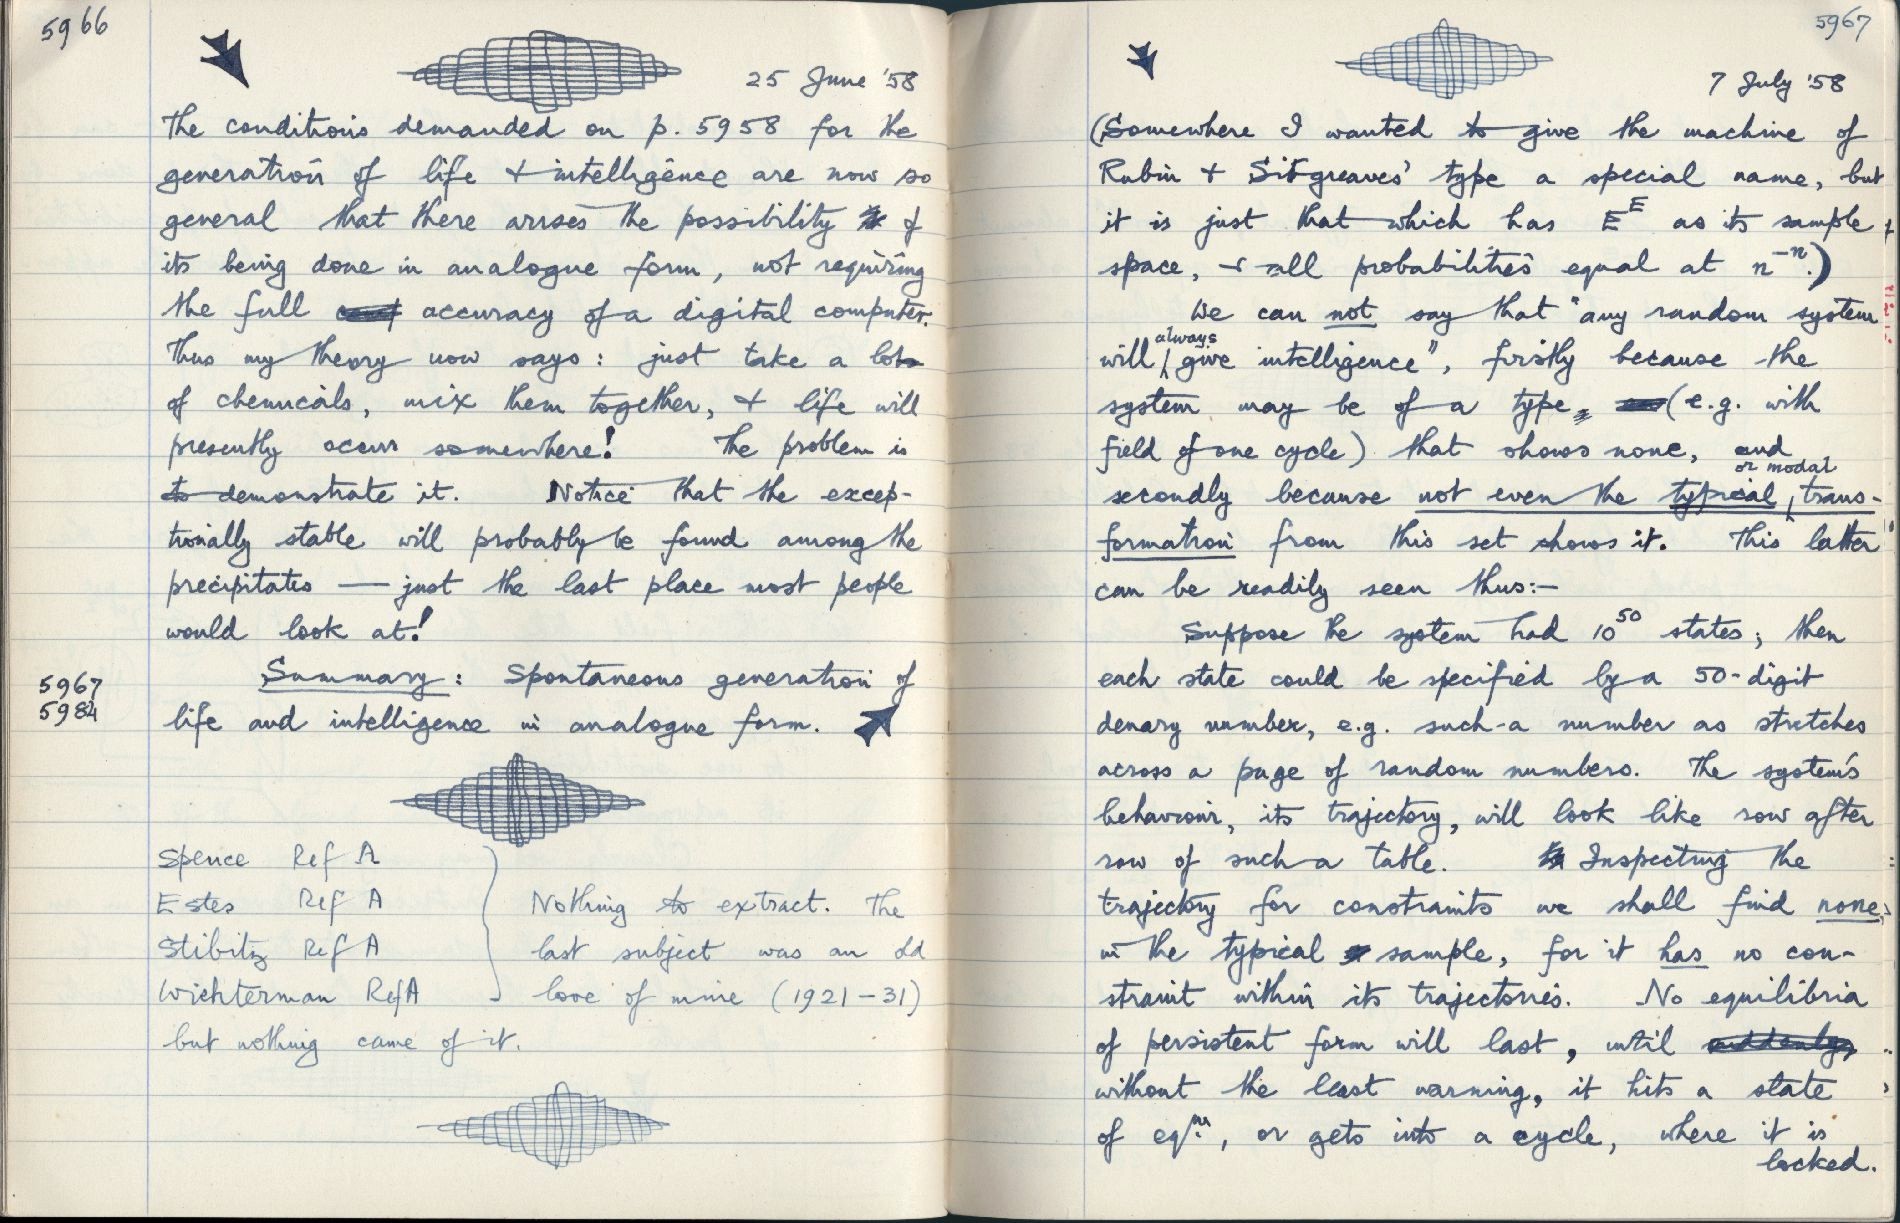 5966
25 June '58
The conditions demanded on p. 5958 for the
generation of life & intelligence are now so
general that there arises the possibility of
its being done in analogue form, not requiring
the full accuracy of a digital computer.
Thus my theory now says: just take a lot
of chemicals, mix them together, & life will
presently occur somewhere! The problem is
to demonstrate it. Notice that the excep-
tionally stable will probably be found among the
precipitates — just the last place most people
would look at!
5967
5984
Summary: Spontaneous generation of
life and intelligence in analogue form.
Spence Ref A
Estes Ref A
Stibitz Ref A
Wichterman Ref A
Nothing to extract. The
last subject was an old
love of mine (1921-31)
but nothing came of it.
5967
7 July '58
(Somewhere I wanted to give the machine of
Rubin & Sitgreaves' type a special name, but
it is just that which has E^E as its sample
space, & all probabilities equal at n^-n.)
We can not say that "any random system
will always give intelligence", firstly because the
system may be of a type (e.g. with
field of one cycle) that shows none, and
secondly because not even the typical or modal trans-
formation from this set shows it. This latter
can be readily seen thus:—
Suppose the system had 10^50 states; then
each state could be specified by a 50-digit
denary number, e.g. such a number as stretches
across a page of random numbers. The system's
behaviour, its trajectory, will look like row after
row of such a table. Inspecting the
trajectory for constraints we shall find none,
in the typical sample, for it has no con-
straint within its trajectories. No equilibria
of persistent form will last, until
without the least warning, it hits a state
of eqm., or gets into a cycle, where it is
locked.